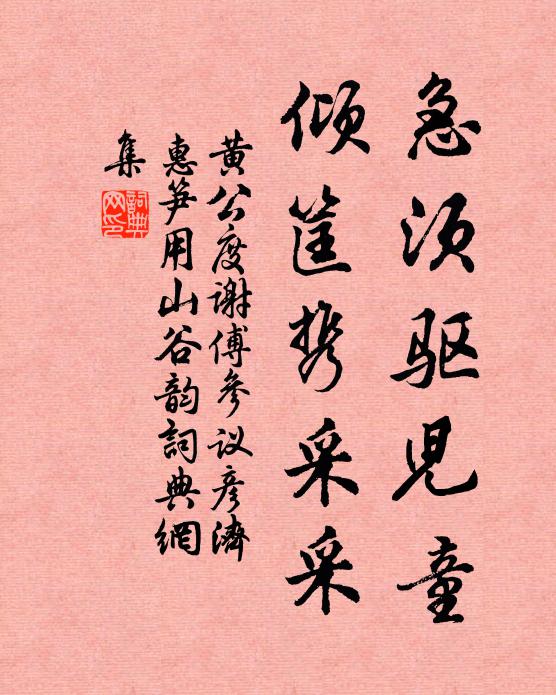 急须驱儿童
倾筐携采采
黄公度谢傅参议彦济
惠笋用山谷韵词典網
集
詞典網印